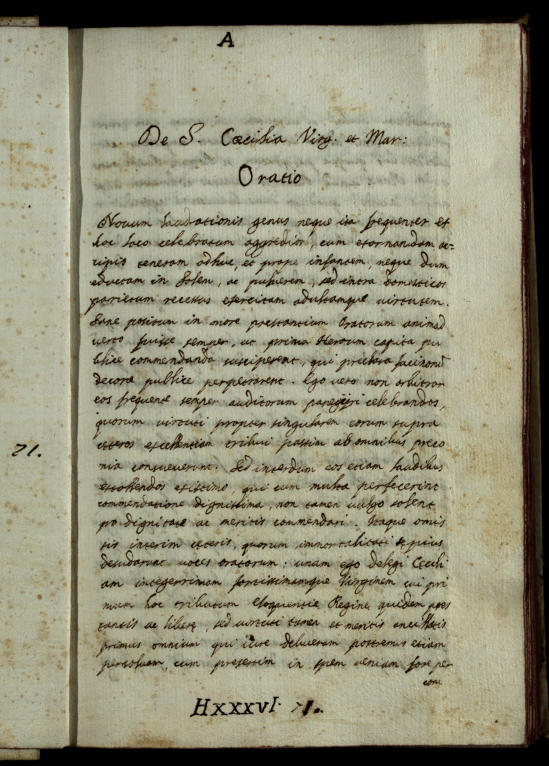 A
De S. Cæcilia Virg. et Mar:
Oratio
Novum laudationis genus neque ita frequenter et
hoc loco celebratum aggredior, cum exornandam ac-
cipio teneram adhuc, et prope infantem, neque dum
eductam in Solem, ac puluerem, sed intra domesticos
parietum recessus exercitam adultamque uirtutem.
Sane positum in more prestantium Oratorum animad
uerto fuisse semper, ut prima Heroum capita pu
blice commendanda susciperent, qui preclara facinorũ
decora publice perpetrarent. Ego uero non arbitror
eos frequenti semper auditorum panegyri celebrandos,
quorum uirtuti propter singularem eorum supra
ceteros excellentiam tribui passim ab omnibus preco
nia consueuerunt. Sed interdum eos etiam laudibus
extollendos existimo, qui cum multa perfecerint
commendatione dignissima, non tamen uulgo solent
pro dignitate ac meritis commendari. Itaque omis
sis interim ceteris, quorum immortalitati sepius
desudarunt uoces oratorum: unam ego delegi Cecili
am integerrimam fortissimamque Virginem cui pri
mum hoc tributum Eloquentie Regine quidem
ac libere, sed uirtuti tamen et meritis
primus omnium qui iure debueram postremus etiam
persoluam, cum presertim in spem ueniam fore per
com
71.
Hxxxvi 71.